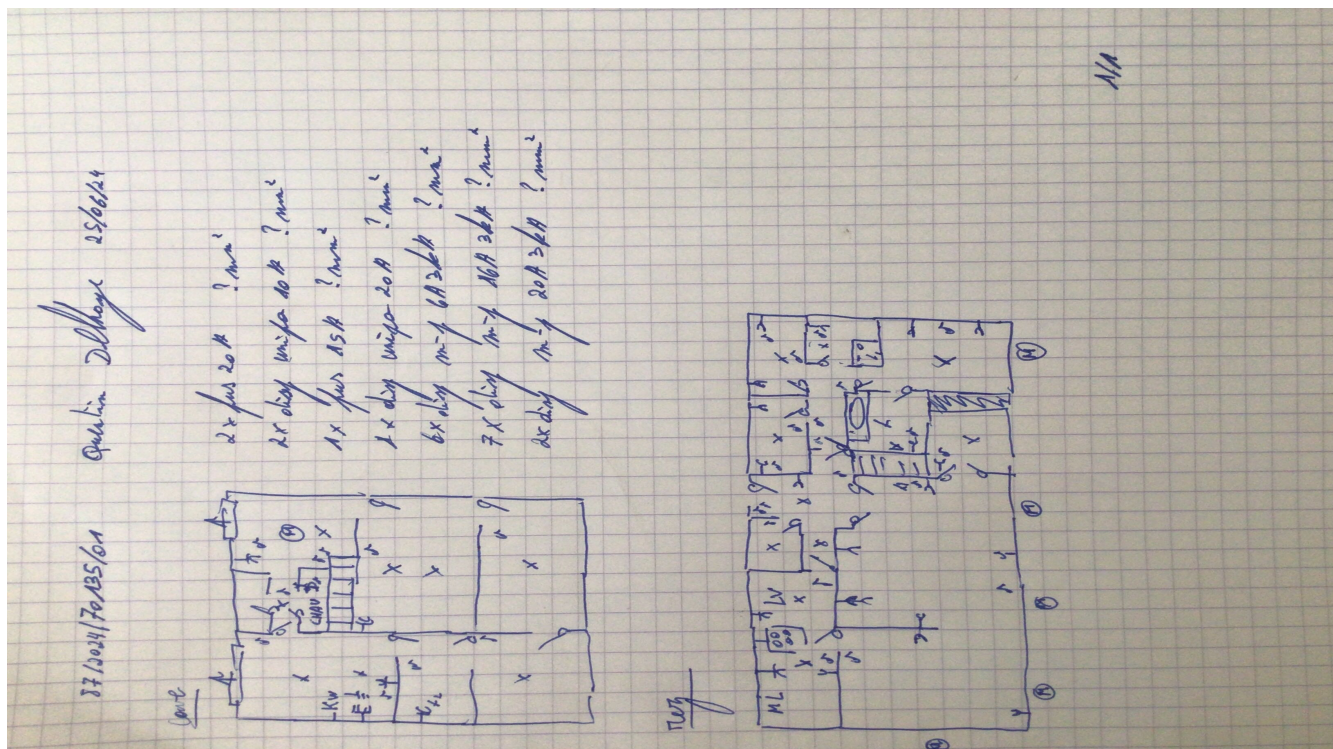 87/2024/70135/01 Quentin Delhaye 25/06/24
Cave
2x fus 20A ?mm²
2x disj unipo 10A ?mm²
1x fus 15A ?mm²
1x disj unipo 20A ?mm²
6x disj 6A 3kA ?mm²
7x disj 16A 3kA ?mm²
2x disj 20A 3kA ?mm²
CHAU
kW
M
Rez
ML
LV
M
M
M
M
1/1